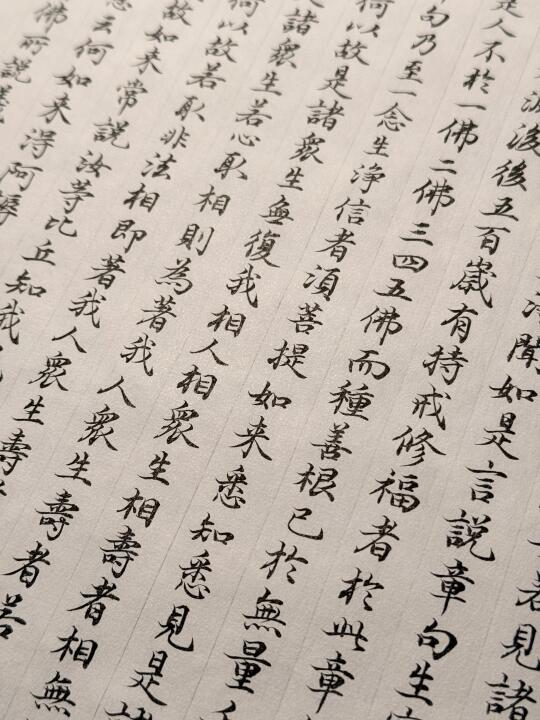 若見諸
聞如是言說章句生
滅後後五百歲有持戒修福者於此章
是人不於一佛二佛三四五佛而種善根已於無量
句乃至一念生淨信者須菩提如來悉知悉見是諸
何以故是諸眾生無復我相人相眾生相壽者相無
諸眾生若心取相則為著我人眾生壽者若
何以故若取非法相即著我人眾生壽
故如來常說汝等比丘知我
云何如來得阿耨
佛所說